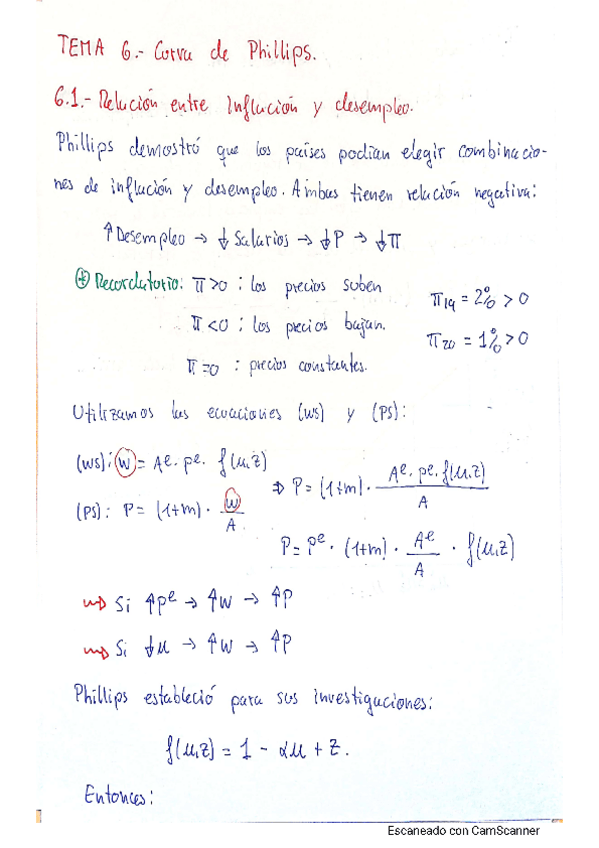 TEMA 6.- Curva de Phillips.
6.1.- Relación entre inflación y desempleo.
Phillips demostró que los países podían elegir combinacio-
nes de inflación y desempleo. Ambas tienen relación negativa:
↑Desempleo → ↓Salarios → ↓P → ↓π
⊕ Recordatorio: π>0 : los precios suben
π<0 : los precios bajan.
π=0 : precios constantes.
π19 = 2% > 0
π20 = 1% > 0
Utilizamos las ecuaciones (WS) y (PS):
(WS): W = A^e · P^e · f(μ,z)
(PS): P = (1+m) · W/A
⇒ P = (1+m) · A^e · P^e · f(μ,z) / A
P = P^e · (1+m) · A^e/A · f(μ,z)
⇝ Si ↑P^e → ↑W → ↑P
⇝ Si ↓μ → ↑W → ↑P
Phillips estableció para sus investigaciones:
f(μ,z) = 1 - αμ + z.
Entonces:
Escaneado con CamScanner